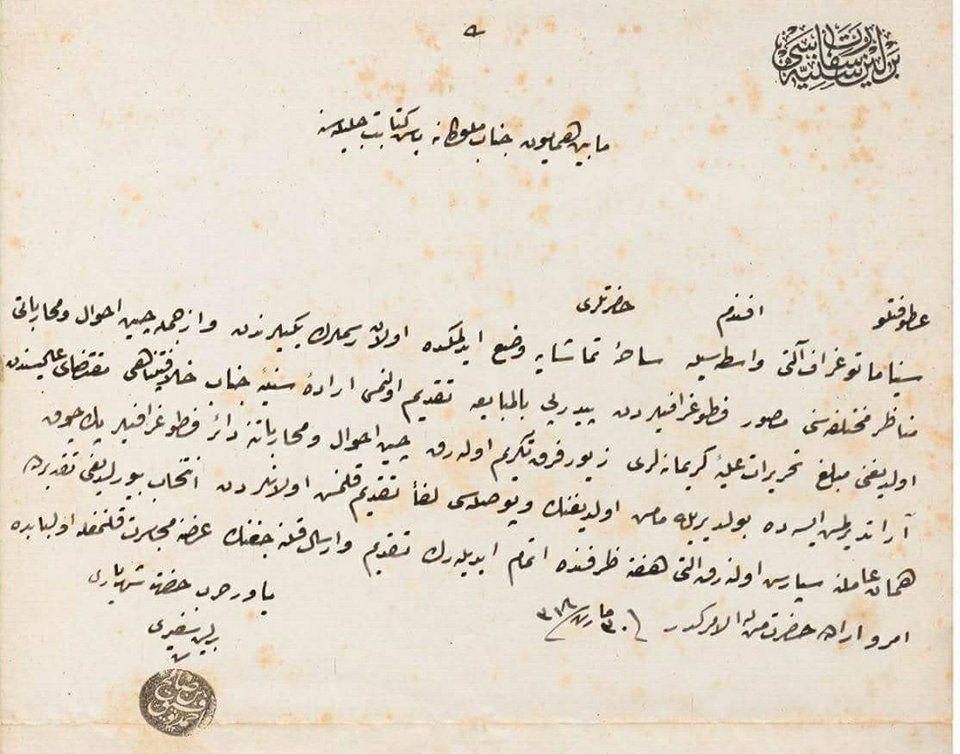 برلین سفارت سنیه سی
مابین همایون جناب ملوکانه باش کتابت جلیله سنه
عطوفتلو افندم حضرتلری
سینماتوغراف آلتی واسطه سیله ساحهٔ تماشایه وضع ایدلمکده اولان رسملرك یکیلرندن و از جمله چین احوال و محارباتی
مناظر مختلفه سنی مصور فطوغرافیلردن پیدرپی بالمبایعه تقدیم اولنمسی ارادهٔ سنیهٔ جناب خلافتپناهی مقتضای عالیسندن
اولدیغنی مبلغ تحریرات علیهٔ کریمانه لری زیور فرق تکریم اوله رق چین احوال و محارباتنه دائر فطوغرافیلر پك چوق
آراتدیرلمش ایسه ده بولدیریله مامش اولدیغندن وپوصله سی لفاً تقدیم قلنمش اولانلردن انتخاب بیوریلدیغی تقدیرده
همان عاملنه سپارش اوله رق التی هفته ظرفنده اتمام ایدیله رك تقدیم و ارسال قلنه جغنك عرضنه مجاسرت قلنمغله اولبابده
امر و اراده حضرت من له الامركدر فی ٣٠ مارت ٣١٨
یاور حرب حضرت شهریاری
برلین سفیری